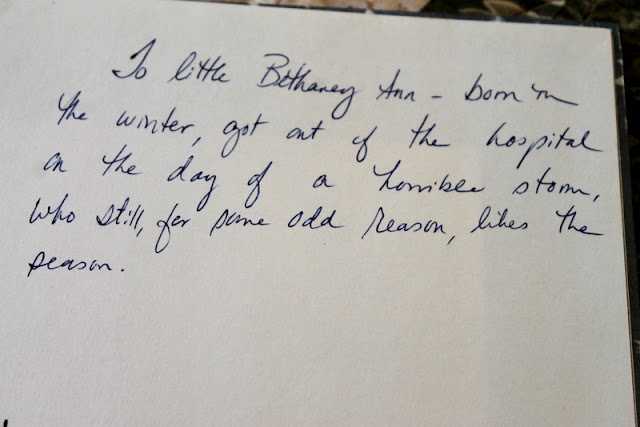 To little Bethaney Ann - born in
the winter, got out of the hospital
on the day of a horrible storm,
who still, for some odd reason, likes the
season.